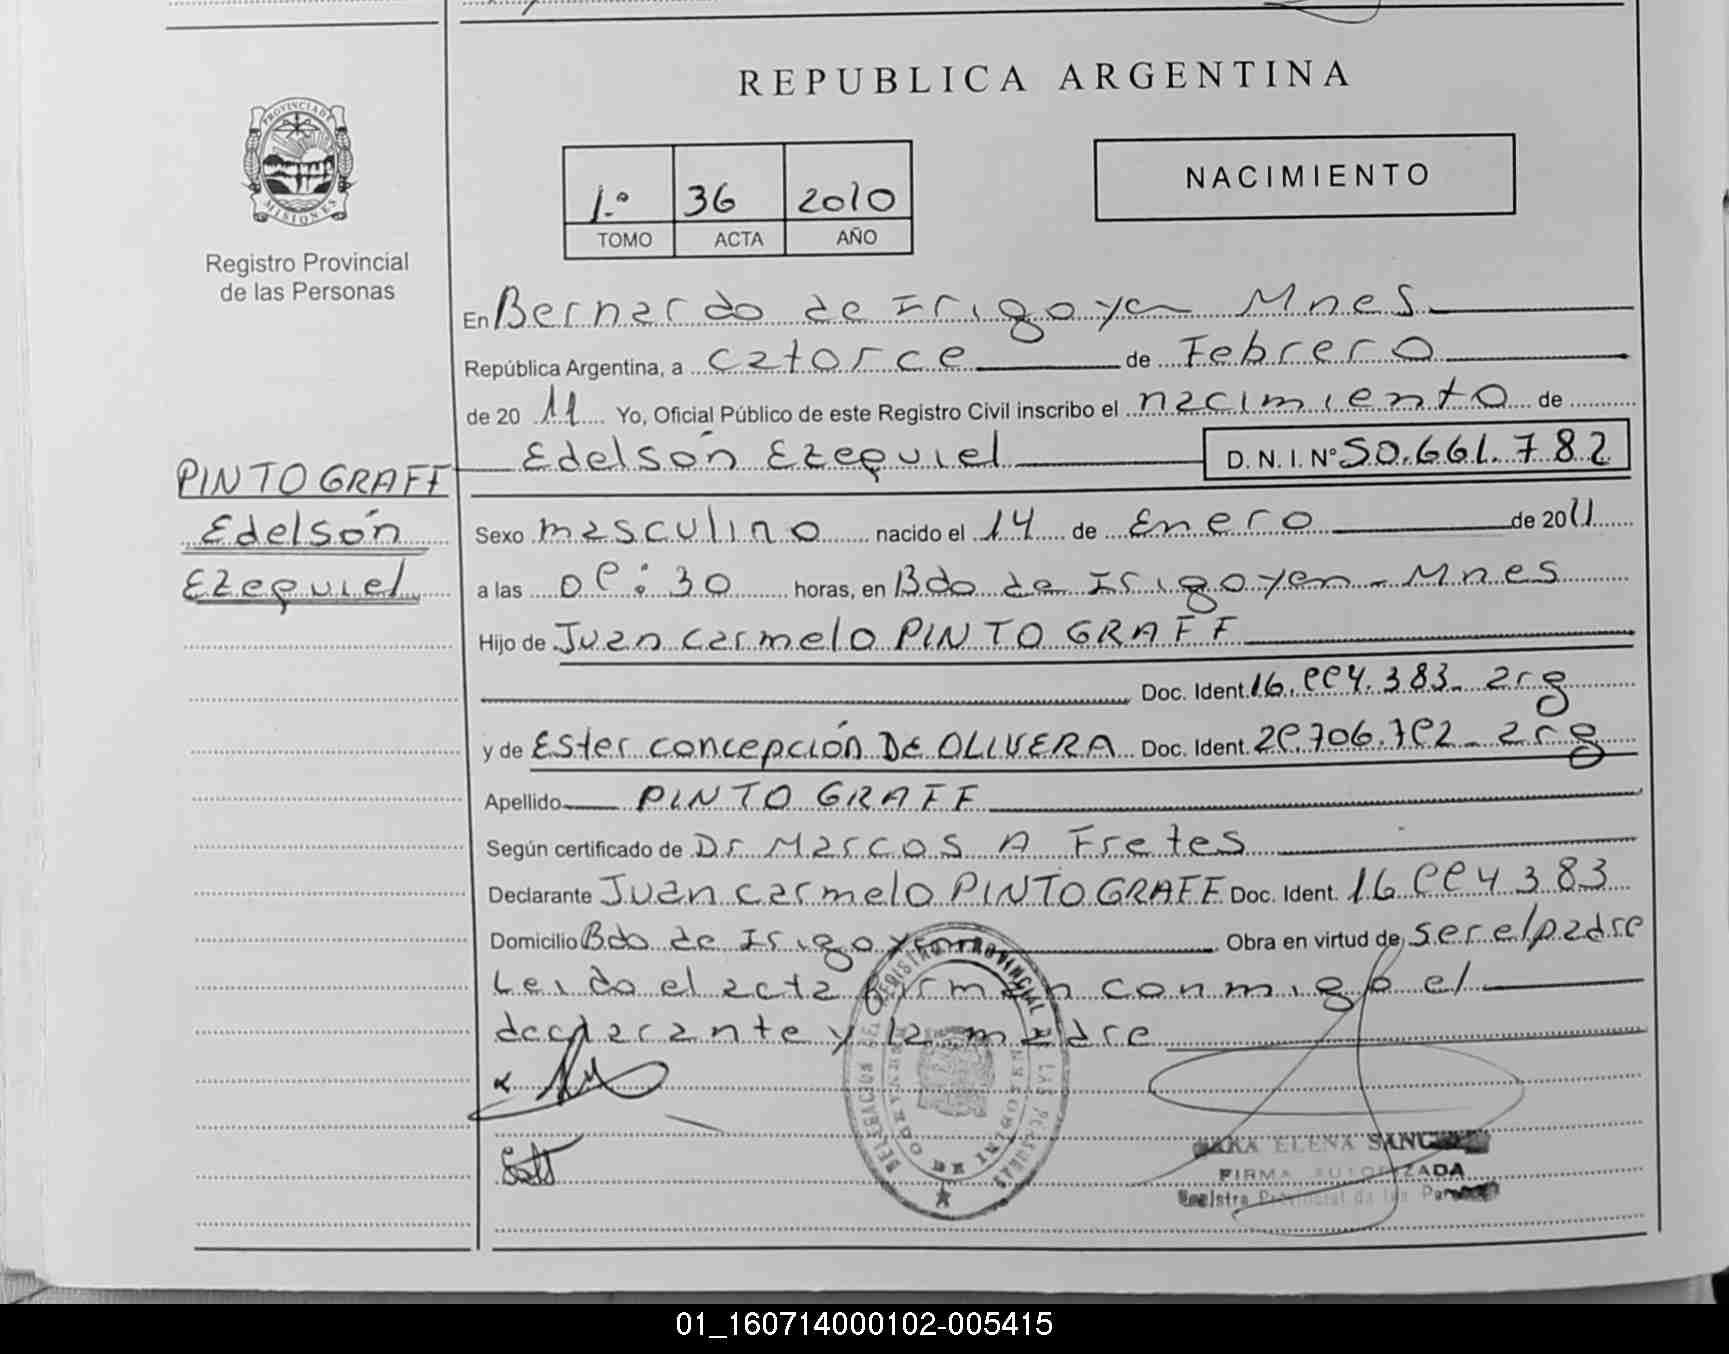 REPUBLICA ARGENTINA
PROVINCIA DE MISIONES
Registro Provincial
de las Personas
1.º 36 2010
TOMO ACTA AÑO
NACIMIENTO
En Bernardo de Irigoyen Mnes
República Argentina, a catorce de Febrero
de 2011 Yo, Oficial Público de este Registro Civil inscribo el nacimiento de
Edelsón Ezequiel D. N. I. Nº 50.661.782
PINTO GRAFF
Edelsón
Ezequiel
Sexo masculino nacido el 14 de Enero de 2011
a las 09:30 horas, en Bdo de Irigoyen - Mnes
Hijo de Juan Carmelo PINTO GRAFF
Doc. Ident. 16.994.383 - arg
y de Ester Concepción DE OLIVERA Doc. Ident. 29.706.792 - arg
Apellido PINTO GRAFF
Según certificado de Dr Marcos A Fretes
Declarante Juan Carmelo PINTO GRAFF Doc. Ident. 16 994 383
Domicilio Bdo de Irigoyen Obra en virtud de ser el padre
Leido el acta firman conmigo el
declarante y la madre
DELEGACION DEL REGISTRO PROVINCIAL DE LAS PERSONAS
BERNARDO DE IRIGOYEN
ELENA
FIRMA AUTORIZADA
Registro Provincial de las Personas
01_160714000102-005415